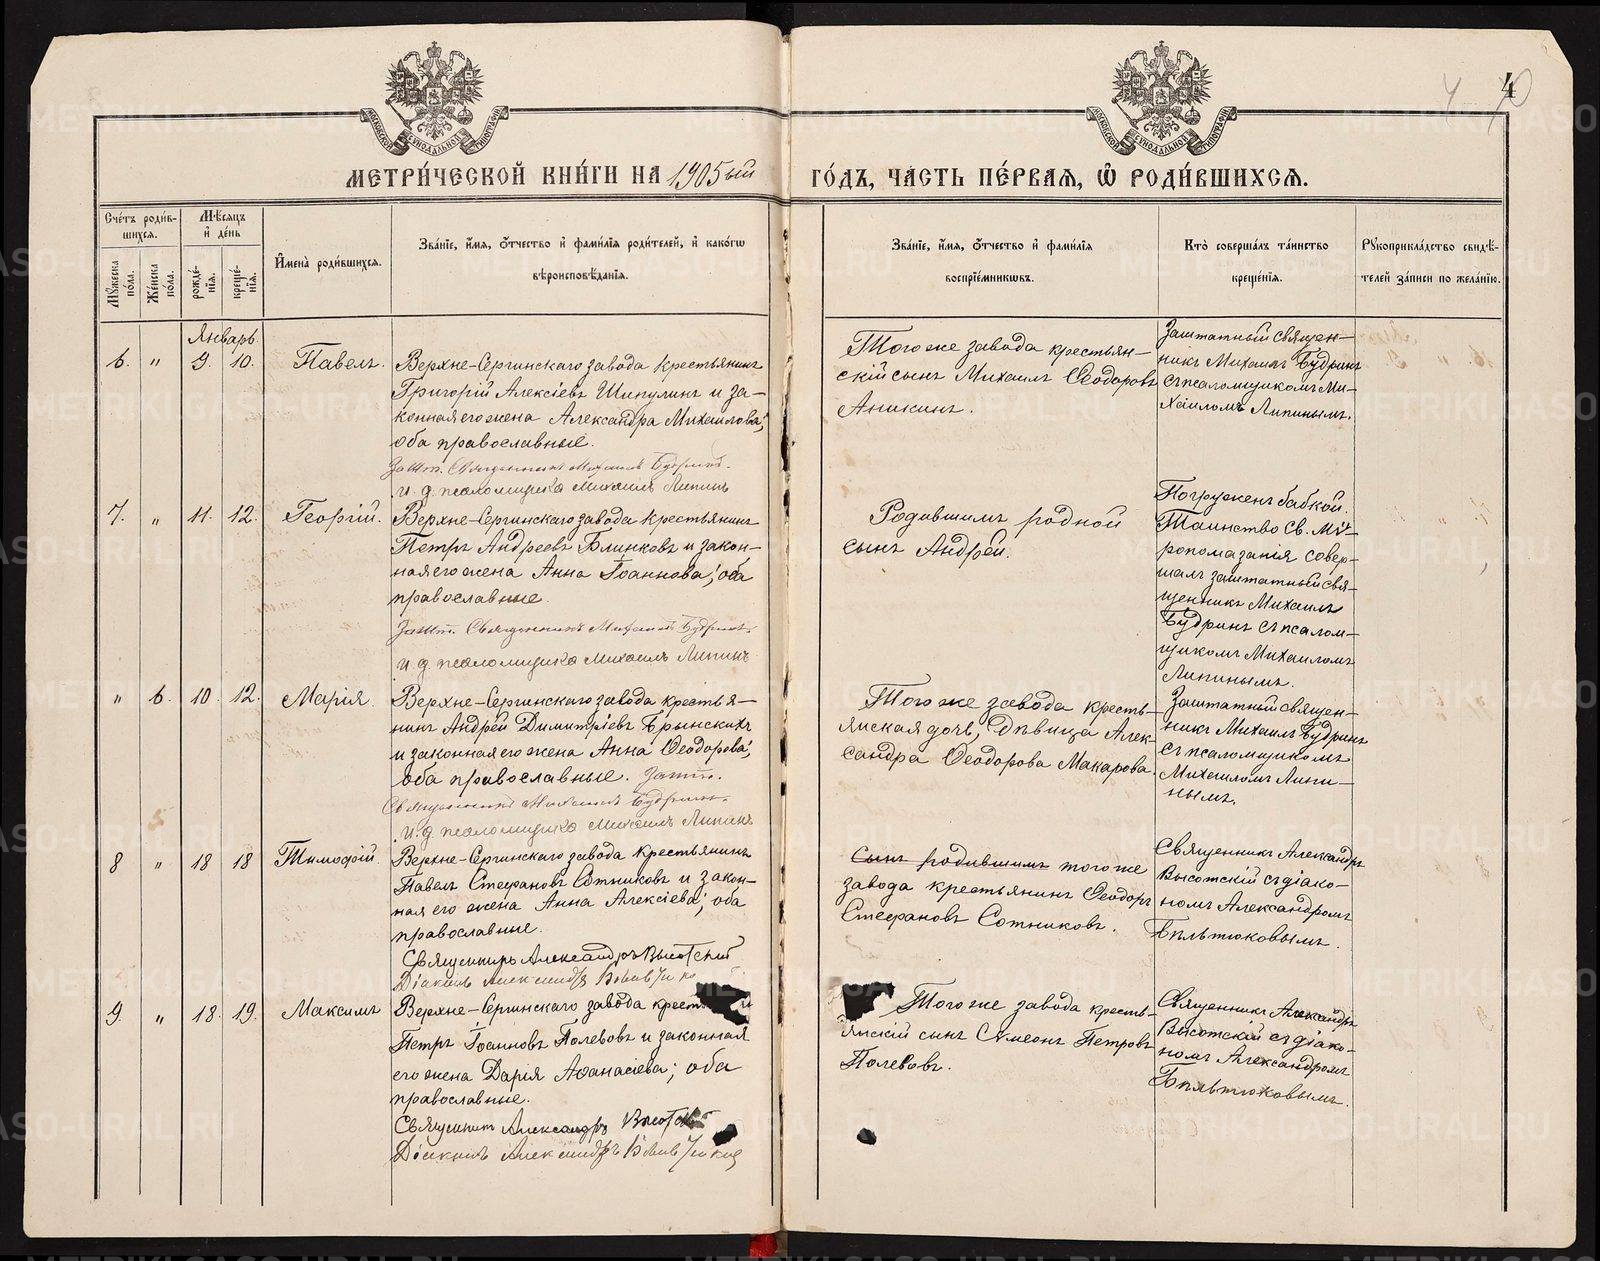 4
МЕТРИ́ЧЕСКОЙ КНИ́ГИ НА 1905ый ГО́ДЪ, ЧА́СТЬ ПЕ́РВАѦ, Ѡ РОДИ́ВШИХСѦ.
Сче́тъ роди́в-
шихсѧ.
Мѣ́сѧцъ
и҆ де́нь
И҆мена̀ роди́вшихсѧ.
Зва́нїе, и҆́мѧ, ѻ҆́тчество и҆ фами́лїѧ роди́телей, и҆ како́гѡ
вѣроисповѣ́данїѧ.
Зва́нїе, и҆́мѧ, ѻ҆́тчество и҆ фами́лїѧ
воспрїе́мникѡвъ.
Кто̀ соверша́лъ та́инство
креще́нїѧ.
Рꙋкоприкла́дство свидѣ́-
телей за́писи по жела́нїю.
Мꙋ́жеска
по́ла.
Же́нска
по́ла.
рожде́-
нїѧ.
креще́-
нїѧ.
Январь
6. " 9. 10. Павелъ.
Верхне-Сергинскаго завода крестьянинъ
Григорій Алексіевъ Шипулинъ и за-
конная его жена Александра Михаилова;
оба православные.
Зашт. Священникъ Михаилъ Будринъ.
и. д. псаломщика Михаилъ Липинъ
Того же завода крестьян-
скій сынъ Михаилъ Ѳеодоровъ
Аникинъ.
Заштатный священ-
никъ Михаилъ Будринъ
съ псаломщикомъ Ми-
хаиломъ Липинымъ.
7. " 11. 12. Георгій.
Верхне-Сергинскаго завода крестьянинъ
Петръ Андреевъ Блинковъ и закон-
ная его жена Анна Іоаннова; оба
православные
Зашт. Священникъ Михаилъ Будринъ.
и. д. псаломщика Михаилъ Липинъ
Родившимъ родной
сынъ Андрей.
Погруженъ бабкой.
Таинство Св. Мѵ-
ропомазанія совер-
шалъ заштатный свя-
щенникъ Михаилъ
Будринъ съ псалом-
щикомъ Михаиломъ
Липинымъ.
" 6. 10. 12. Марія.
Верхне-Сергинскаго завода крестья-
нинъ Андрей Димитріевъ Брынскихъ
и законная его жена Анна Ѳеодорова;
оба православные. Зашт.
Священникъ Михаилъ Будринъ.
и. д. псаломщика Михаилъ Липинъ
Того же завода кресть-
янская дочь, дѣвица Алек-
сандра Ѳеодорова Макарова.
Заштатный священ-
никъ Михаилъ Будринъ
съ псаломщикомъ
Михаиломъ Липи-
нымъ.
8 " 18 18 Тимофій.
Верхне-Сергинскаго завода крестьянинъ
Павелъ Стефановъ Сотниковъ и закон-
ная его жена Анна Алексіева; оба
православные.
Священникъ Александръ Высотскій
Діаконъ Александръ
Сынъ родившимъ того же
завода крестьянинъ Ѳеодоръ
Стефановъ Сотниковъ.
Священникъ Александръ
Высотскій съ діако-
номъ Александромъ
Бѣльтюковымъ.
9. " 18. 19. Максимъ
Верхне-Сергинскаго завода крест
Петръ Іоанновъ Полевовъ и законная
его жена Дарія Аѳанасіева; оба
православные.
Священникъ Александръ Высотскій
Діаконъ Александръ
Того же завода кресть-
янскій сынъ Сѵмеонъ Петровъ
Полевовъ.
Священникъ Александръ
Высотскій съ діако-
номъ Александромъ
Бѣльтюковымъ.